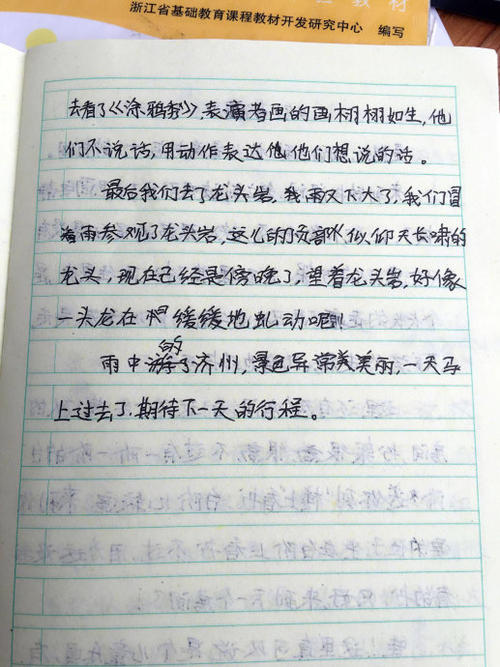 教材
浙江省基础教育课程教材开发研究中心 编写
去看了《涂鸦秀》表演者画的画栩栩如生,他
们不说话,用动作表达他他们想说的话。
最后我们去了龙头岩,我雨又下大了,我们冒
着雨参观了龙头岩,这儿的顶部似仰天长啸的
龙头,现在已经是傍晚了,望着龙头岩,好像
一头龙在缓缓地虬动呢!
雨中游的济州,景色异常美美丽,一天马
上过去了,期待下一天的行程。